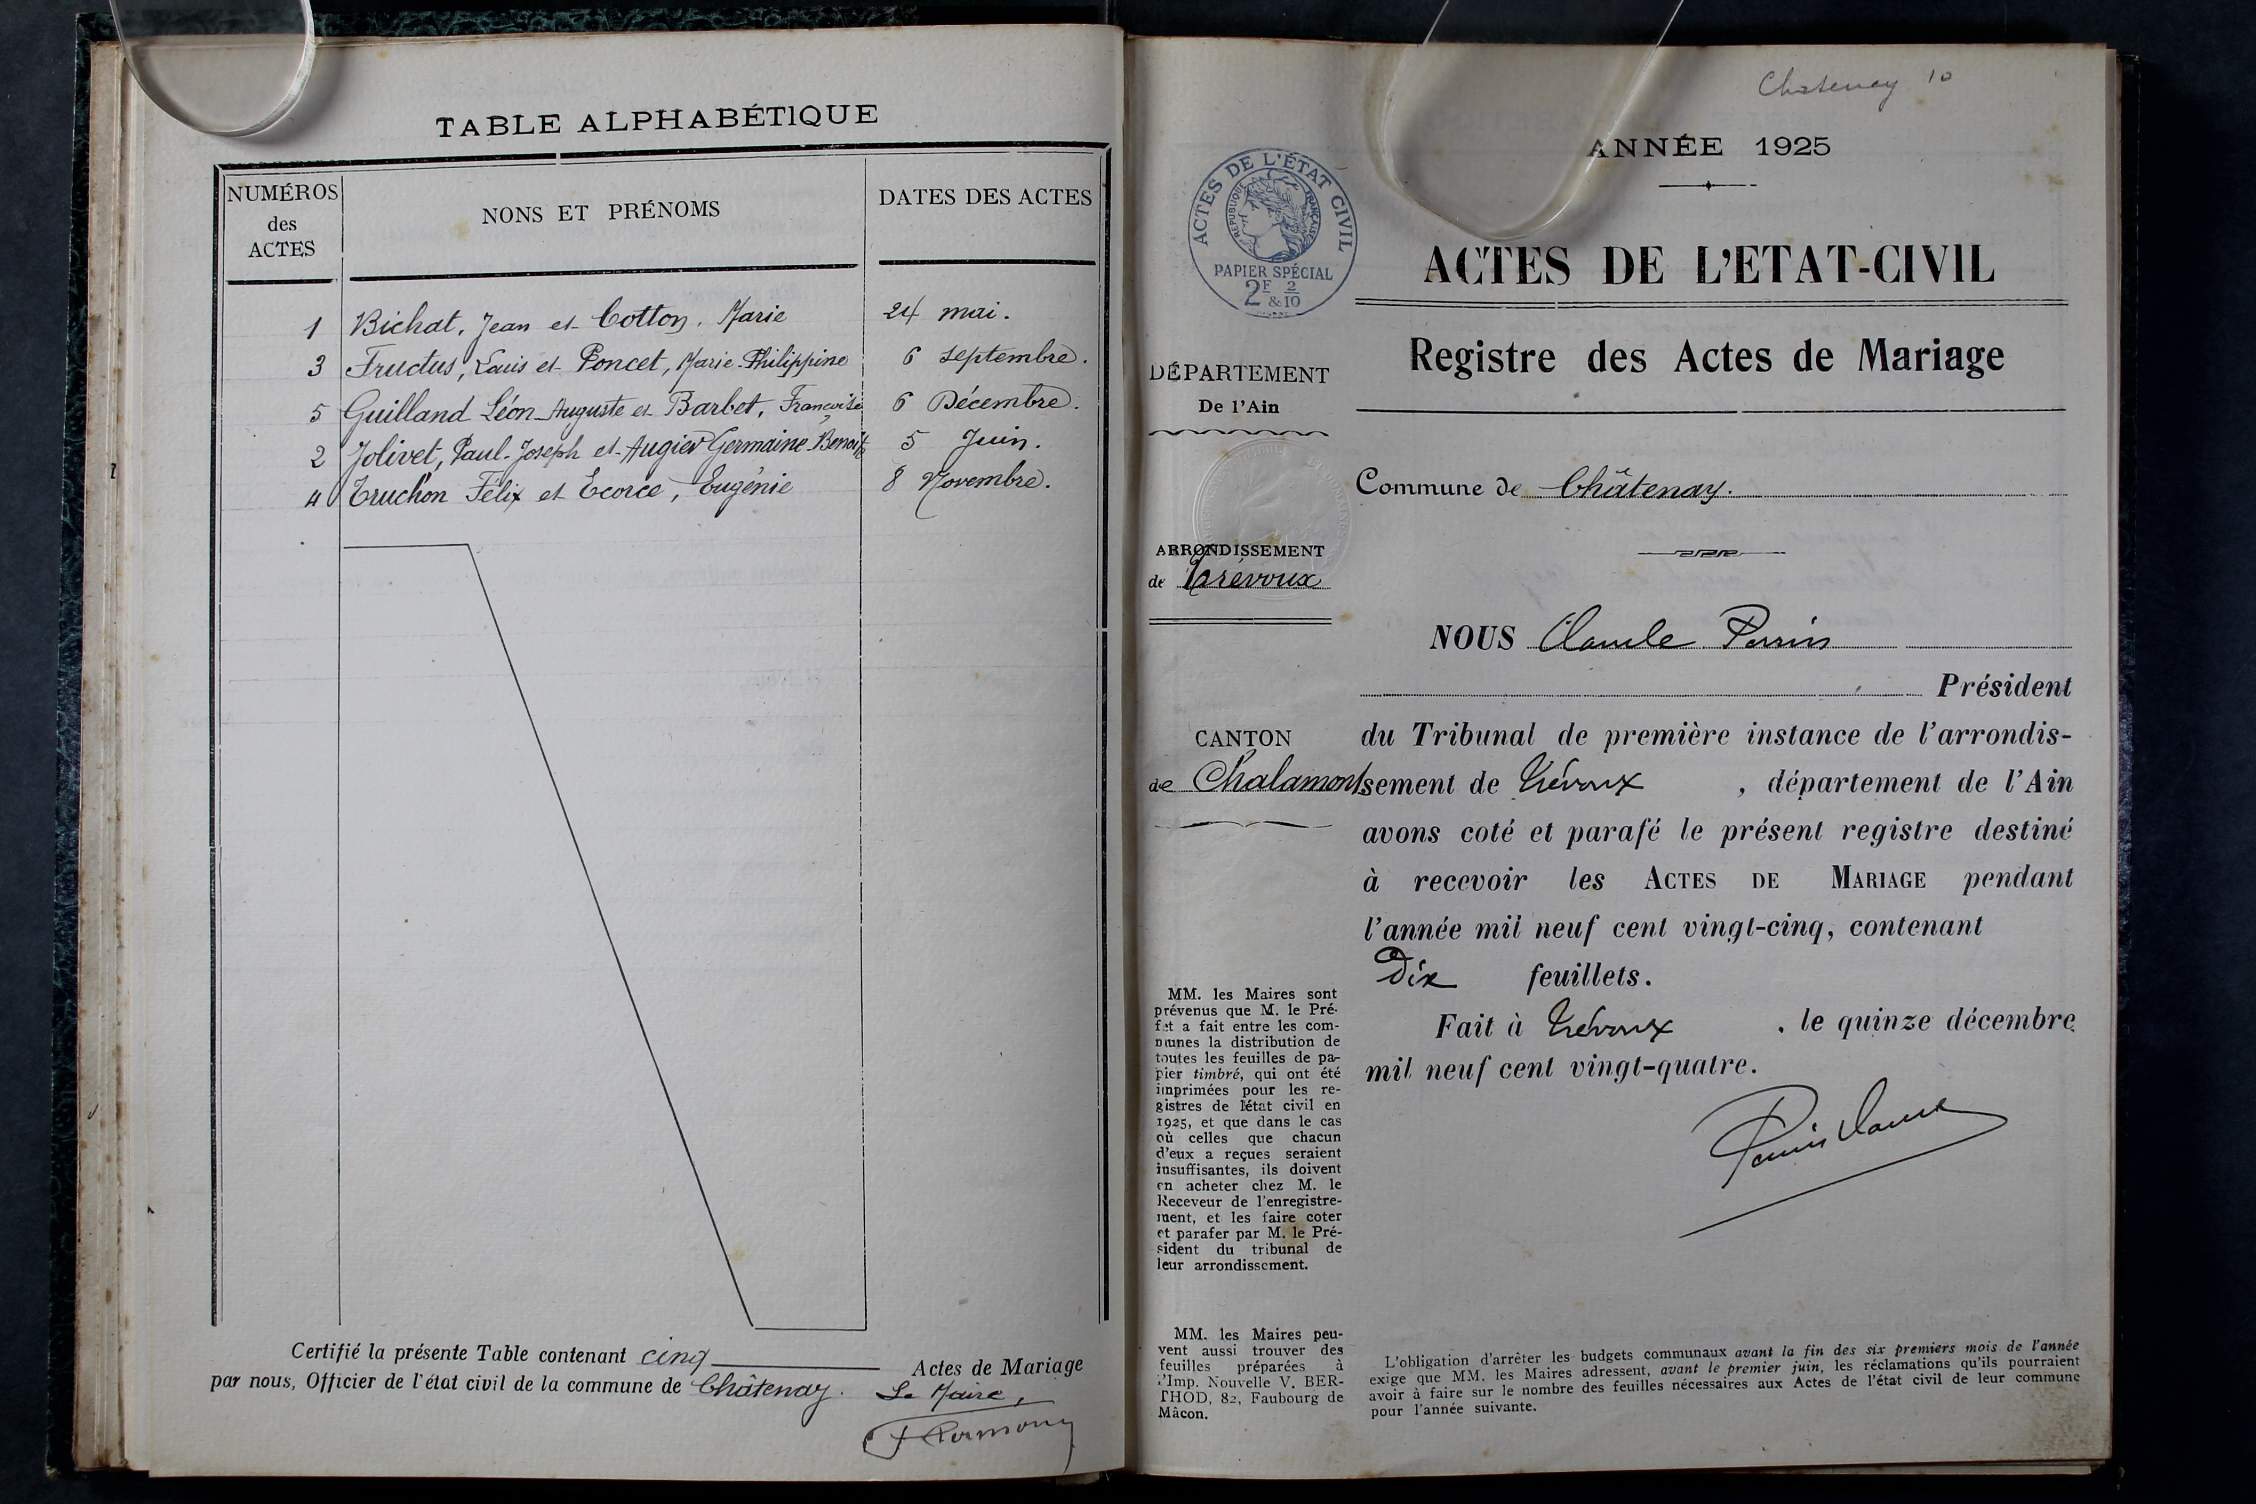 TABLE ALPHABÉTIQUE
NUMÉROS
des
ACTES
NONS ET PRÉNOMS
DATES DES ACTES
1 Bichat, Jean et Cotton, Marie 24 mai.
3 Fructus, Louis et Poncet, Marie-Philippine 6 septembre.
5 Guilland Léon-Auguste et Barbet, Françoise 6 Décembre.
2 Jolivet, Paul-Joseph et Augier Germaine-Benoite 5 Juin.
4 Truchon Félix et Ecorce, Eugénie 8 Novembre.
Certifié la présente Table contenant cinq Actes de Mariage
par nous, Officier de l'état civil de la commune de Châtenay.
Le Maire,
Chatenay 10
ANNÉE 1925
ACTES DE L'ÉTAT CIVIL
RÉPUBLIQUE FRANÇAISE
PAPIER SPÉCIAL
2F & 2/10
ACTES DE L'ETAT-CIVIL
Registre des Actes de Mariage
DÉPARTEMENT
De l'Ain
Commune de Châtenay.
ARRONDISSEMENT
de Trévoux
NOUS Claude Perrin
Président
CANTON
de Chalamont
du Tribunal de première instance de l'arrondis-
sement de Trévoux , département de l'Ain
avons coté et parafé le présent registre destiné
à recevoir les ACTES DE MARIAGE pendant
l'année mil neuf cent vingt-cinq, contenant
Dix feuillets.
Fait à Trévoux , le quinze décembre
mil neuf cent vingt-quatre.
MM. les Maires sont
prévenus que M. le Pré-
fet a fait entre les com-
munes la distribution de
toutes les feuilles de pa-
pier timbré, qui ont été
imprimées pour les re-
gistres de l'état civil en
1925, et que dans le cas
où celles que chacun
d'eux a reçues seraient
insuffisantes, ils doivent
en acheter chez M. le
Receveur de l'enregistre-
ment, et les faire coter
et parafer par M. le Pré-
sident du tribunal de
leur arrondissement.
MM. les Maires peu-
vent aussi trouver des
feuilles préparées à
l'Imp. Nouvelle V. BER-
THOD, 82, Faubourg de
Mâcon.
L'obligation d'arrêter les budgets communaux avant la fin des six premiers mois de l'année
exige que MM. les Maires adressent, avant le premier juin, les réclamations qu'ils pourraient
avoir à faire sur le nombre des feuilles nécessaires aux Actes de l'état civil de leur commune
pour l'année suivante.